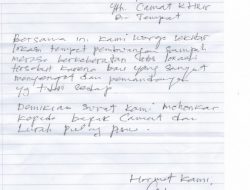 Yth. Camat K
Di Tempat
Bersama ini kami warga sekitar
lokasi tempat pembuangan sampah
merasa berkeberatan atas lokasi
tersebut karena bau yang sangat
menyengat dan pemandangan
yg tidak sedap
Demikian surat kami mohonkan
kepada bapak Camat dan
Lurah
Hormat Kami,